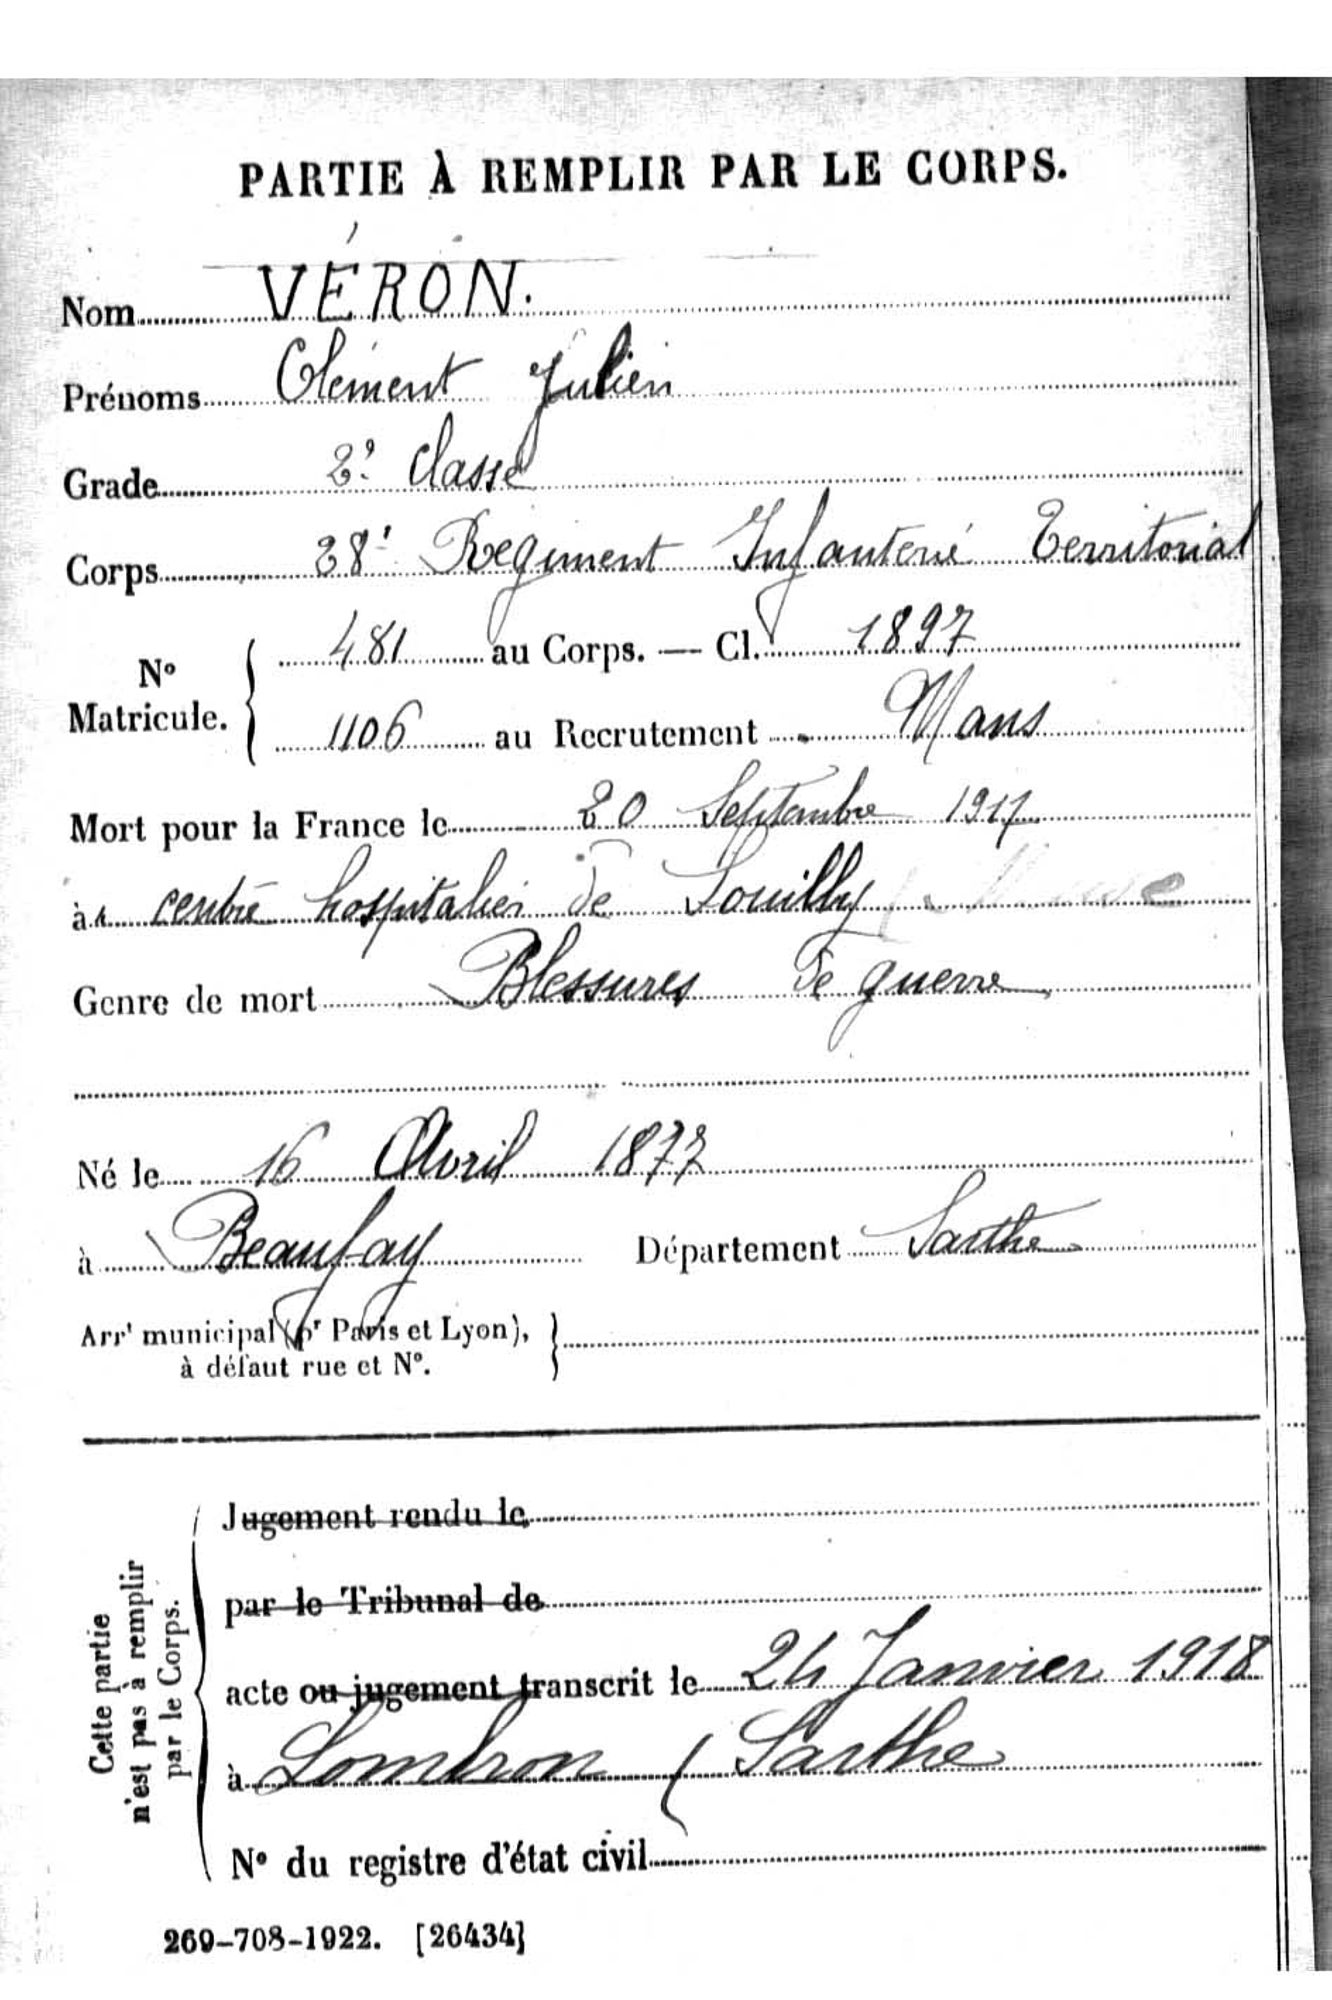 PARTIE À REMPLIR PAR LE CORPS.
Nom VÉRON.
Prénoms Clément Julien
Grade 2e Classe
Corps 28e Régiment Infanterie Territorial
No Matricule. 481 au Corps. — Cl. 1897
1106 au Recrutement Mans
Mort pour la France le 20 Septembre 1917
à centre hospitalier de Souilly (Meuse
Genre de mort Blessures de guerre
Né le 16 Avril 1877
à Beaufay Département Sarthe
Arrt municipal (pr Paris et Lyon),
à défaut rue et No.
Cette partie
n'est pas à remplir
par le Corps.
Jugement rendu le
par le Tribunal de
acte ou jugement transcrit le 24 Janvier 1918
à Lombron (Sarthe
No du registre d'état civil
269-708-1922. [26434]